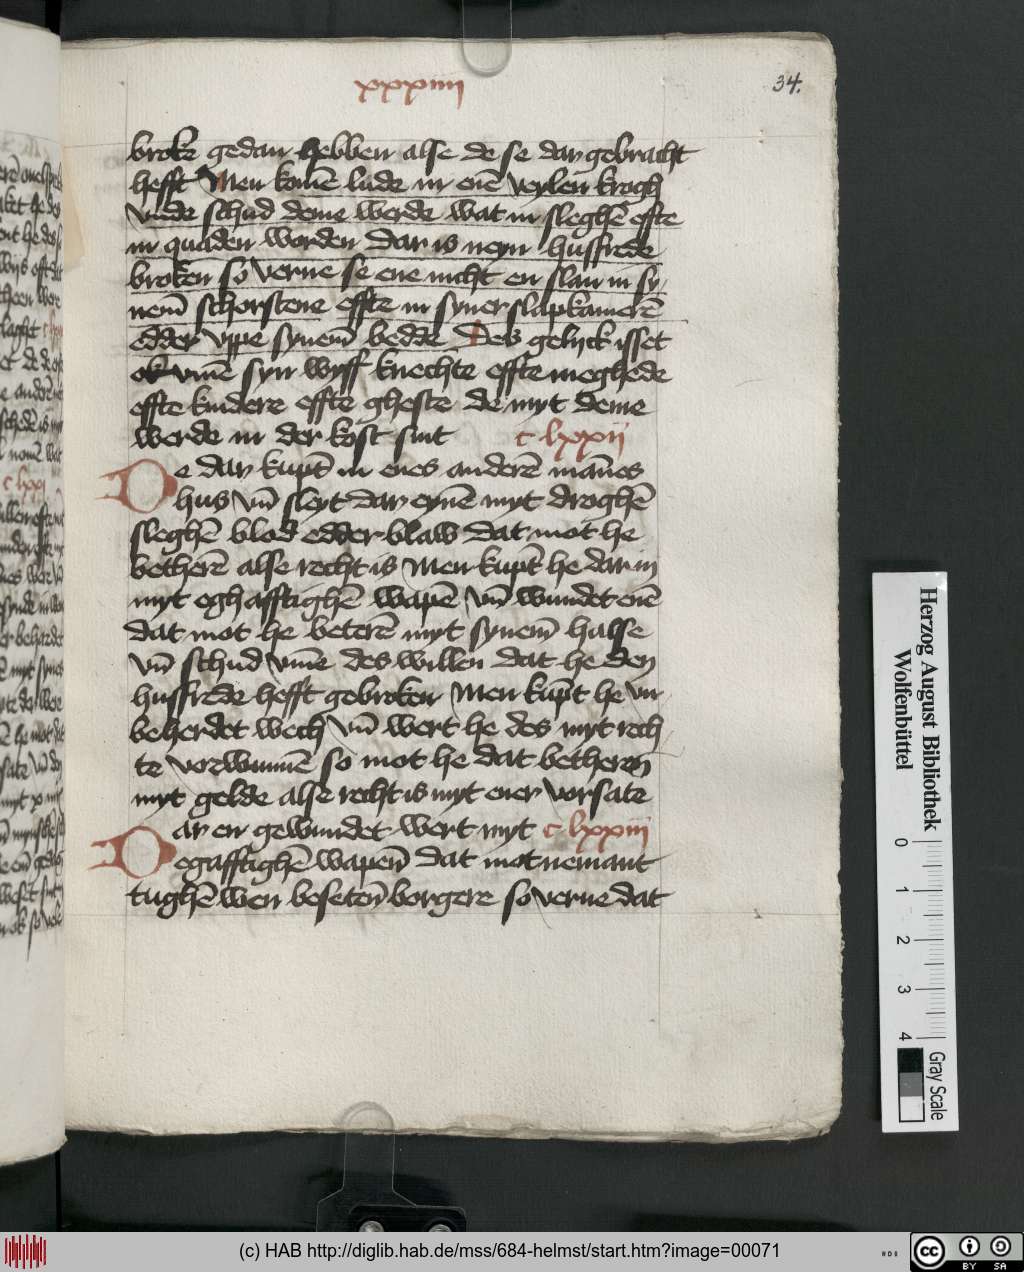 xxxiiii
34.
broke gedan hebben alse de se dar gebracht
hefft Men komē lude in enē veylen krogh
vnde schud deme werde wat in sleghē effte
in quaden worden Dar is neyn husfrede
broken so verne se ene nicht en slan in sy,
nem̄ schorstene effte in syner slapkamerē
edder vppe synem̄ bedde Des gelyck isset
ok vm̄e syn wyff knechte effte meghede
effte kindere effte gheste de myt deme
werde in der kost sint c lxxii
De dar kupt̄ in enes anderē man̄es
hus vn̄ sleyt dar eynē myt droghē
sleghē blod edder blaw Dat mot he
betherē alse recht is Men kupt̄ he dar in
myt eghafftighē wapē vn̄ wundet enē
dat mot he beterē myt synem̄ halse
vn̄ schud vm̄e des willen dat he den
husfrede hefft gebroken Men kupt̄ he vn
beherdet wech vn̄ wert he des myt rech
te vorwunnē so mot he dat betheren
myt gelde alse recht is myt ener vorsate
Dar en gewundet wert myt c lxxiii
egafftighē wapen̄ dat mot nemant
tughē wen beseten̄ borgere so verne dat
Herzog August Bibliothek
Wolfenbüttel
0 1 2 3 4
Gray Scale
(c) HAB http://diglib.hab.de/mss/684-helmst/start.htm?image=00071
cc BY SA